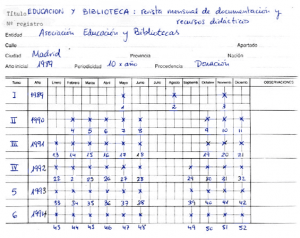 Título EDUCACION Y BIBLIOTECA : revista mensual de documentación y
recursos didácticos
Nº registro
Entidad Asociación Educación y Bibliotecas
Calle Apartado
Ciudad Madrid Provincia Nación
Año inicial 1989 Periodicidad 10 x año Procedencia Donación
Tomo Año Enero Febrero Marzo Abril Mayo Junio Julio Agosto Septiem. Octubre Noviem. Diciem. OBSERVACIONES
I 1989 x x x
1 2 3
II 1990 x x x x x x x x
4 5 6 7 8 9 10 11
III 1991 x x x x x x x x x
13 14 15 16 17 18 19 20 21
IV 1992 x x x x x x x x x x
5 1993 x x x x x x x x x x
33 34 35 36 37 38 39 40 41 42
6 1994 x x x x x x x x x x
43 44 45 46 47 48 49 50 51 52